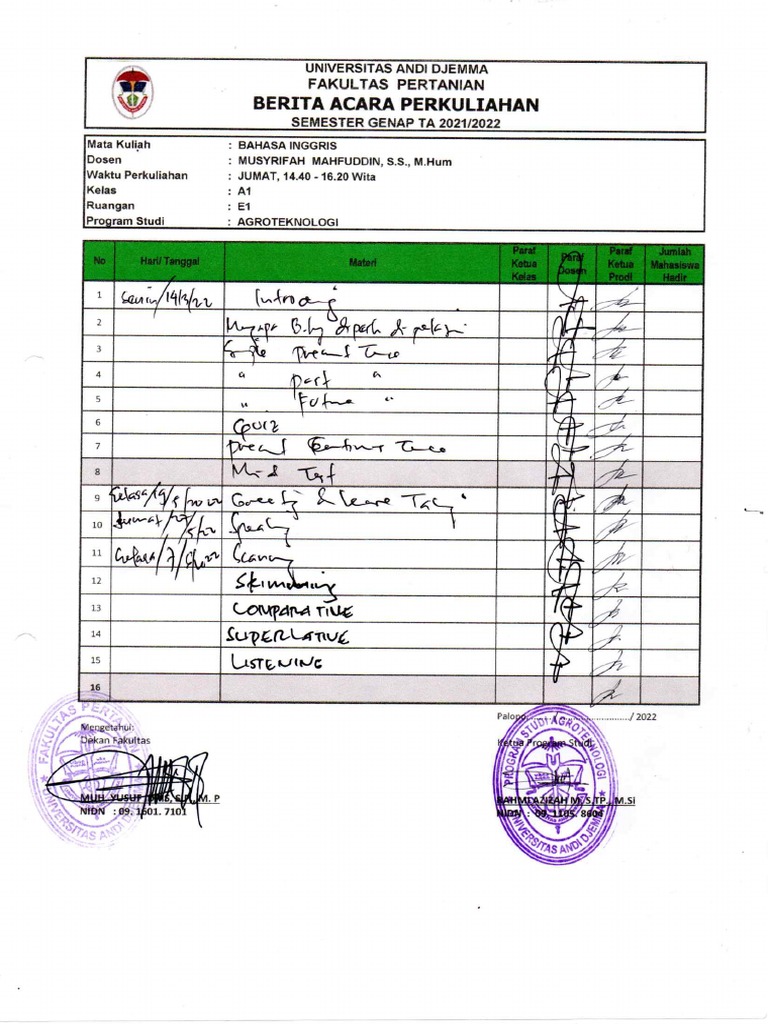 UNIVERSITAS ANDI DJEMMA
FAKULTAS PERTANIAN
BERITA ACARA PERKULIAHAN
SEMESTER GENAP TA 2021/2022
Mata Kuliah : BAHASA INGGRIS
Dosen : MUSYRIFAH MAHFUDDIN, S.S., M.Hum
Waktu Perkuliahan : JUMAT, 14.40 - 16.20 Wita
Kelas : A1
Ruangan : E1
Program Studi : AGROTEKNOLOGI
No Hari/ Tanggal Materi Paraf Ketua Kelas Paraf Dosen Paraf Ketua Prodi Jumlah Mahasiswa Hadir
1 Senin/14/3/22
2
3 Simple Present Tence
4 " past "
5 " Future "
6 Quiz
7 Present Tence
8 Mid Test
9 Greeting & Leave
10 Jumat/27/5/22
11
12 Skimming
13 COMPARATIVE
14 SUPERLATIVE
15 LISTENING
16
Palopo, / 2022
Mengetahui:
Dekan Fakultas
Ketua Program Studi
MUH. YUSUF M. P
RAHMI AZIZAH M, S.TP., M.Si
NIDN : 09. 1601. 7101
NIDN : 09. 1105. 8604
FAKULTAS PERTANIAN
UNIVERSITAS ANDI
PROGRAM STUDI AGROTEKNOLOGI
UNIVERSITAS ANDI DJEMMA